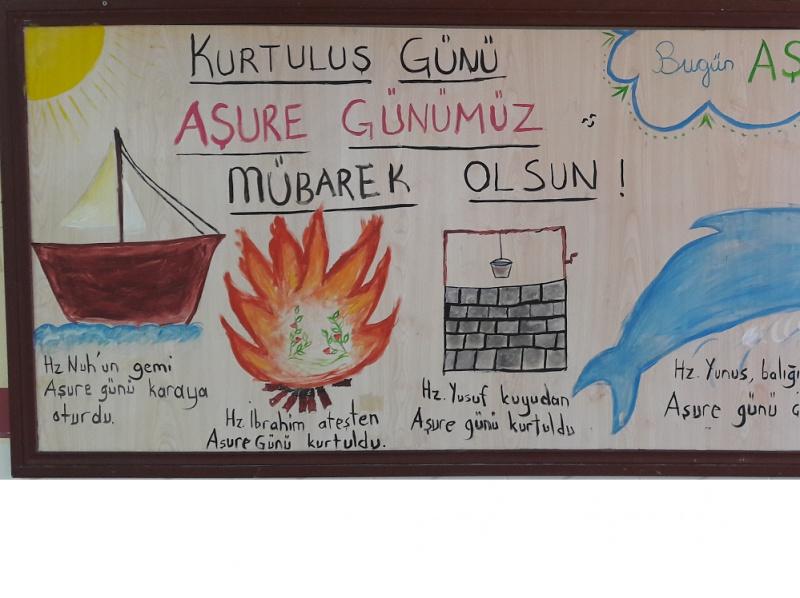 KURTULUŞ GÜNÜ
AŞURE GÜNÜMÜZ
MÜBAREK OLSUN !
Bugün
Hz Nuh'un gemi
Aşure günü karaya
oturdu.
Hz. İbrahim ateşten
Aşure Günü kurtuldu.
Hz. Yusuf kuyudan
Aşure günü kurtuldu
Hz. Yunus,
Aşure günü